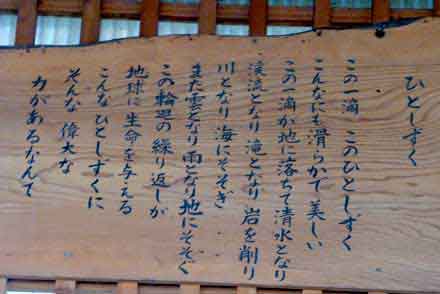 ひとしずく
この一滴 このひとしずく
こんなにも滑らかで美しい
この一滴が地に落ちて清水となり
渓流となり滝となり岩を削り
川となり海にそそぎ
また雲となり雨となり地にそそぐ
この輪廻の繰り返しが
地球に生命を与える
こんなひとしずくに
そんな偉大な
力があるなんて